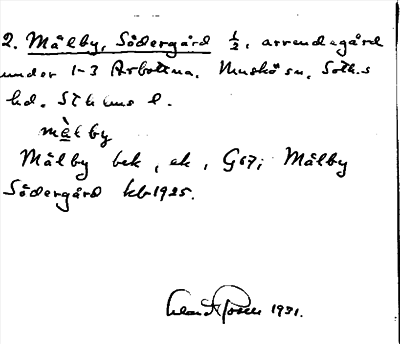 2. Målby, Södergård 1/2, arrendegård
under 1-3 Arbottna. Muskö sn. Soth.s
hd. Sthlms l.
målby
Målby bek, ek, G67; Målby
Södergård kb 1925.
1931.